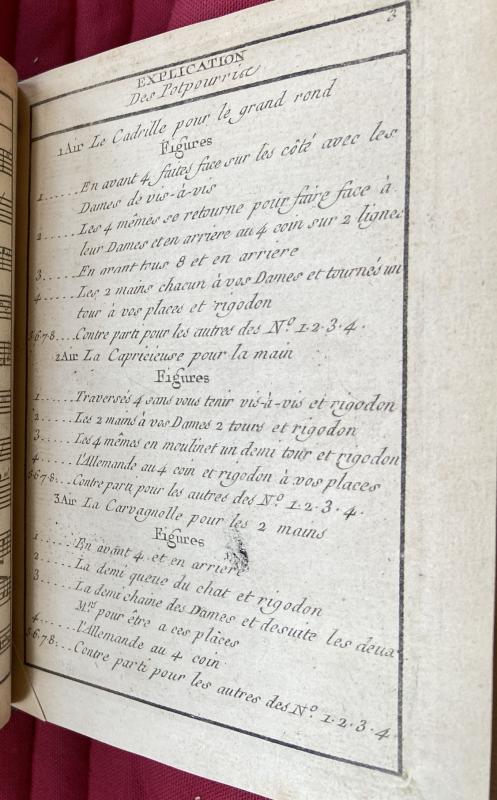 3
EXPLICATION
Des Potpourris
1 Air Le Cadrille pour le grand rond
Figures
1......En avant 4 faites face sur les côté avec les
Dames de vis-à-vis
2......Les 4 mêmes se retourne pour faire face à
leur Dames et en arriere au 4 coin sur 2 lignes
3......En avant tous 8 et en arriere
4......Les 2 mains chacun à vos Dames et tournés un
tour à vos places et rigodon
5·6·7·8...Contre parti pour les autres des Nº 1·2·3·4·
2 Air La Capricieuse pour la main
Figures
1......Traversés 4 sans vous tenir vis-à-vis et rigodon
2......Les 2 mains à vos Dames 2 tours et rigodon
3......Les 4 mêmes en moulinet un demi tour et rigodon
4......l'Allemande au 4 coin et rigodon à vos places
5·6·7·8...Contre parti pour les autres des Nº 1·2·3·4·
3 Air La Carvagnolle pour les 2 mains
Figures
1......En avant 4 et en arriere
2......La demi queue du chat et rigodon
3......La demi chaine des Dames et desuite les deux
Mrs pour être a ces places
4......l'Allemande au 4 coin
5·6·7·8...Contre parti pour les autres des Nº 1·2·3·4·